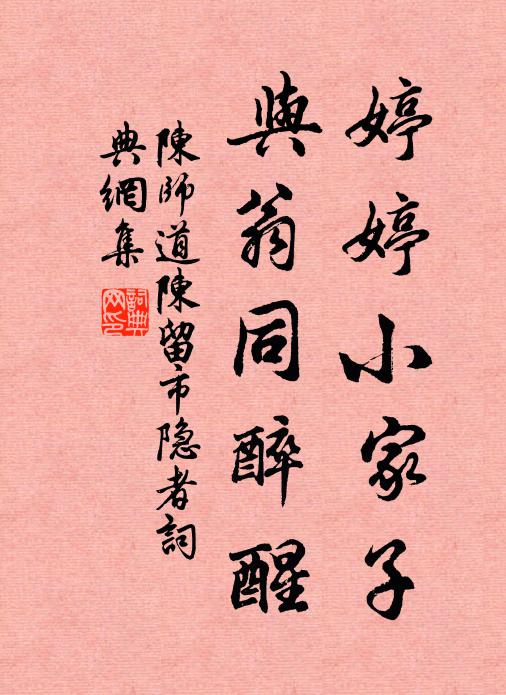 婷婷小家子
與翁同醉醒
陳師道陳留市隐者詞
典網集
詞典
网印